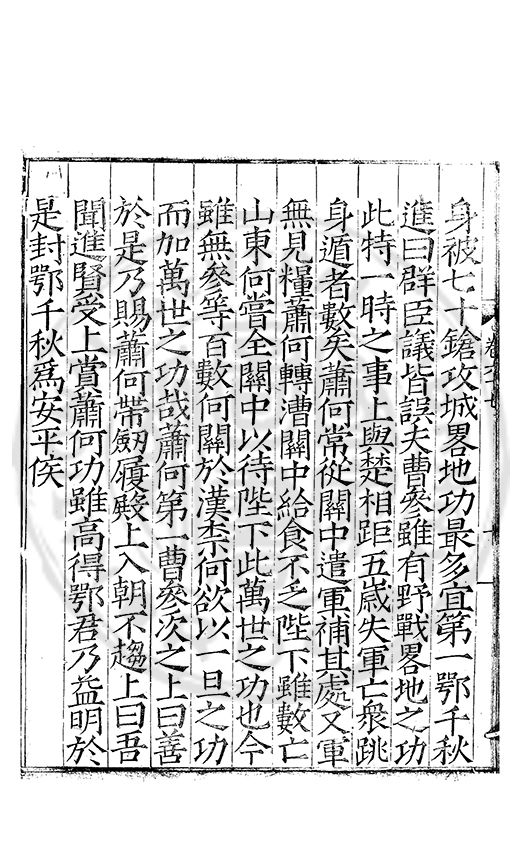 身被七十鎗攻城畧地功最多宜第一鄂千秋
進曰群臣議皆誤夫曹參雖有野戰畧地之功
此特一時之事上與楚相距五歲失軍亡衆跳
身遁者數矣蕭何常從關中遣軍補其處又軍
無見糧蕭何轉漕關中給食不乏陛下雖數亡
山東何嘗全關中以待陛下此萬世之功也今
雖無參等百數何闕於漢柰何欲以一旦之功
而加萬世之功哉蕭何第一曹參次之上曰善
於是乃賜蕭何帶劒履殿上入朝不趨上曰吾
聞進賢受上賞蕭何功雖高得鄂君乃益明於
是封鄂千秋爲安平侯